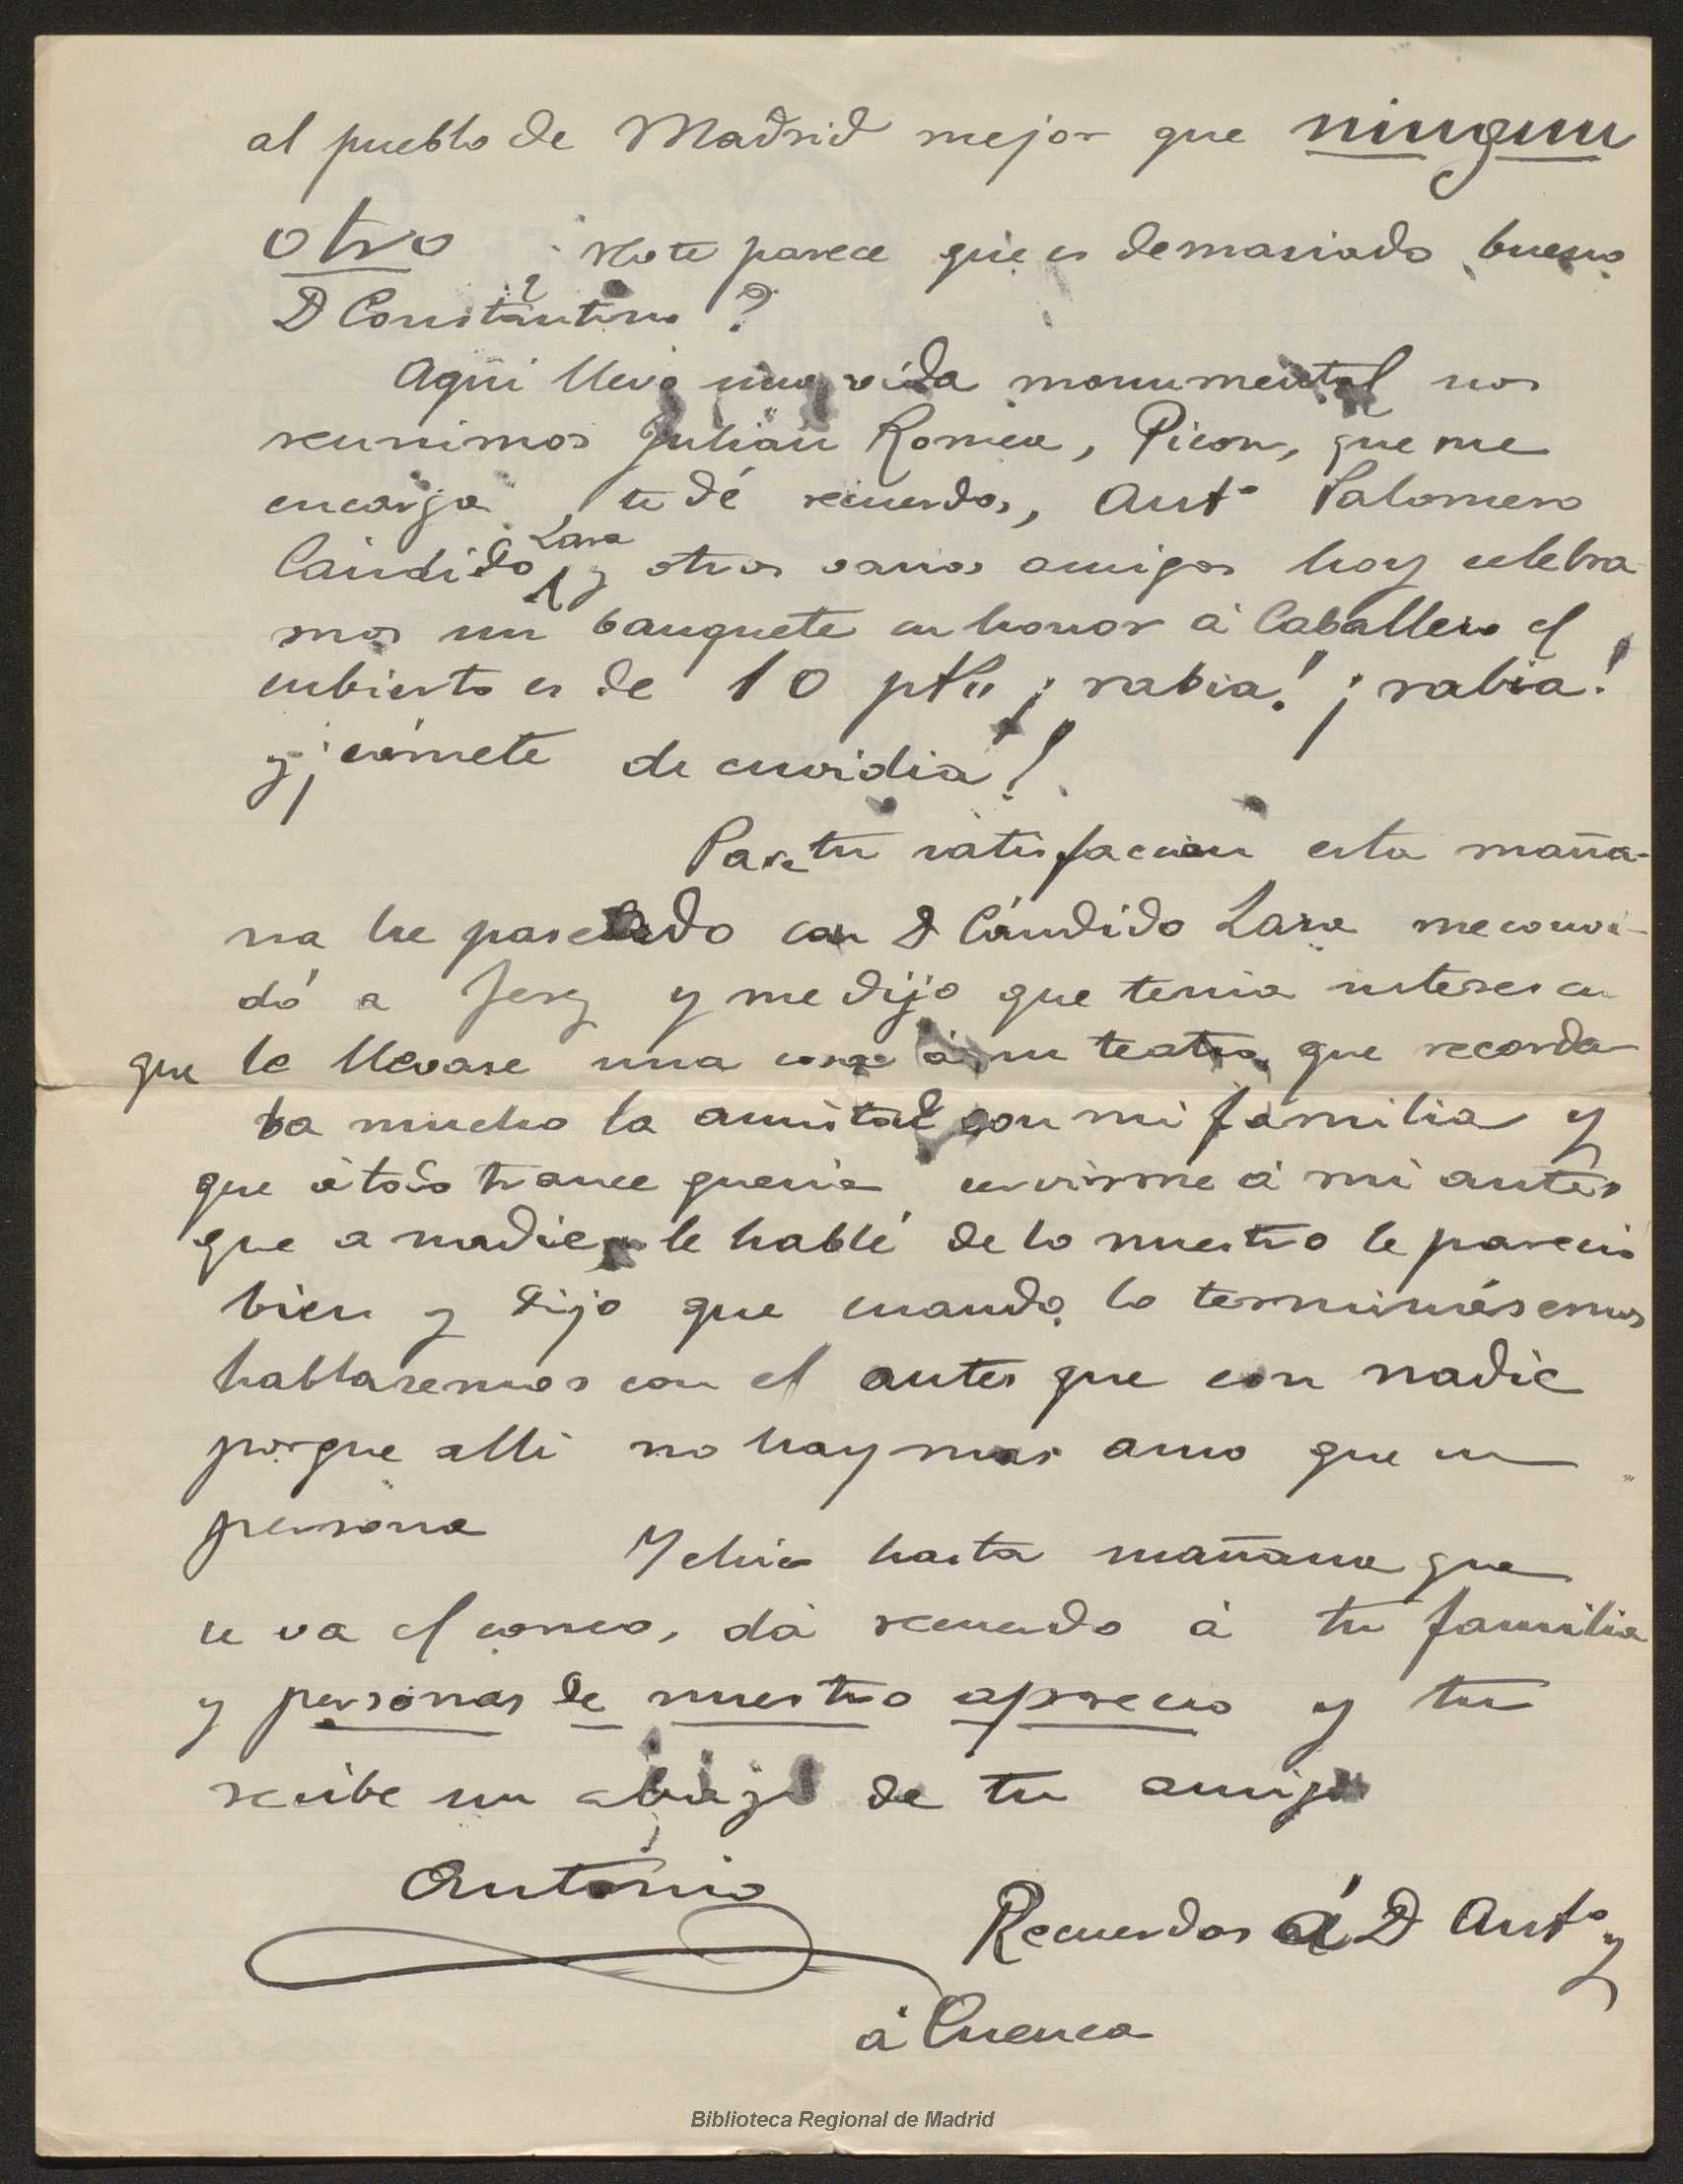 al pueblo de Madrid mejor que ningun
otro ¿No te parece que es demasiado bueno
D Constantino?
Aqui llevo una vida monumental nos
reunimos Julian Romea, Picon, que me
encarga te dé recuerdos, Antº Palomero
Cándido Lara y otros varios amigos hoy celebra
mos un banquete en honor á Caballero el
cubierto es de 10 pts ¡rabia! ¡rabia!
y ¡cómete de envidia!
Para tu satisfaccion esta maña-
na he paseado con D Cándido Lara me convi-
dó a Jerez y me dijo que tenia interes en
que le llevase una cosa á su teatro que recorda
ba mucho la amistad con mi familia y
que á todo trance queria servirme á mi antes
que a nadie, le hablé de lo nuestro le pareció
bien y dijo que cuando lo terminásemos
hablasemos con el antes que con nadie
porque alli no hay mas amo que su
persona Y chico hasta mañana que
se va el correo, dá recuerdo á tu familia
y personas de nuestro aprecio y tu
recibe un abrazo de tu amigo
Antonio
Recuerdos á D Antº y
á Cuenca
Biblioteca Regional de Madrid